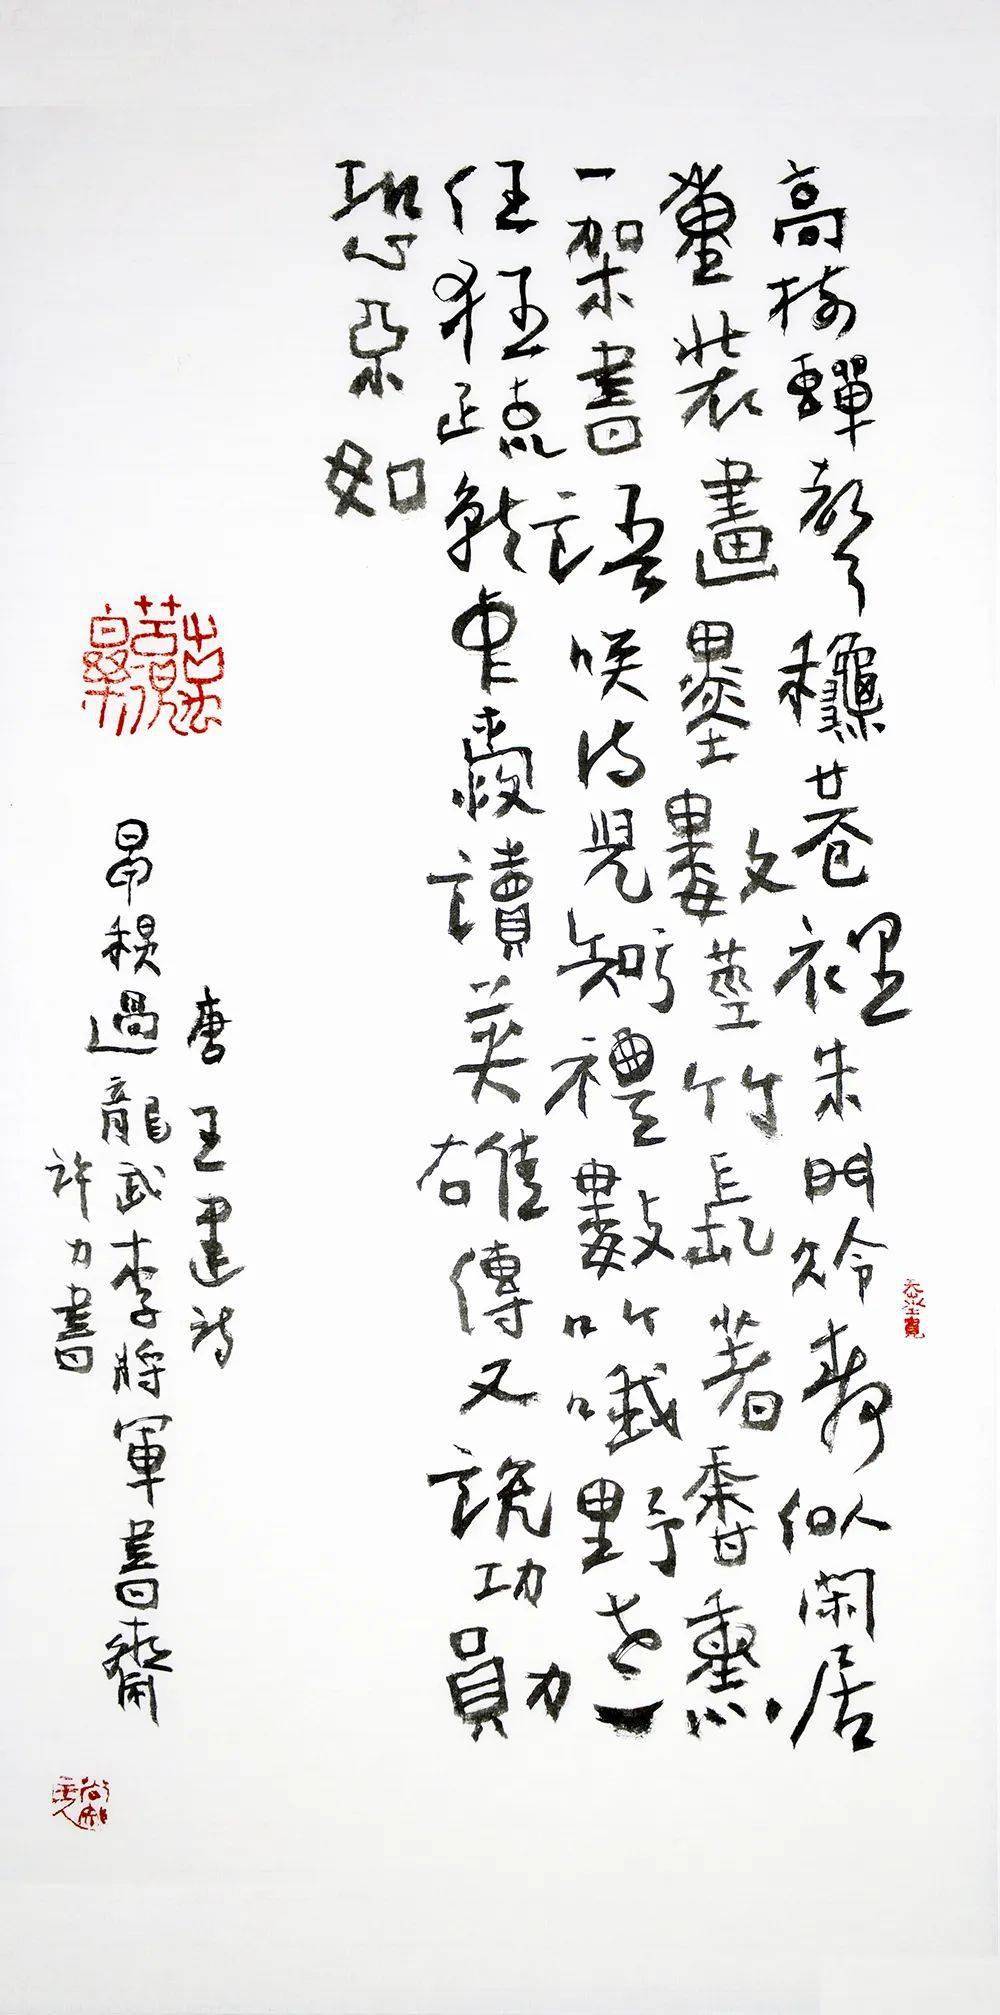 高樹蟬聲穐巷裡朱門冷靜似閑居
重裝畫墨數莖竹長著香熏
一架書語咲侍兒知禮數吟哦野老
任狂疏就中愛讀英雄傳又說功勳
恐不如
唐王建詩
早秋過龍武李將軍書齋
許力書